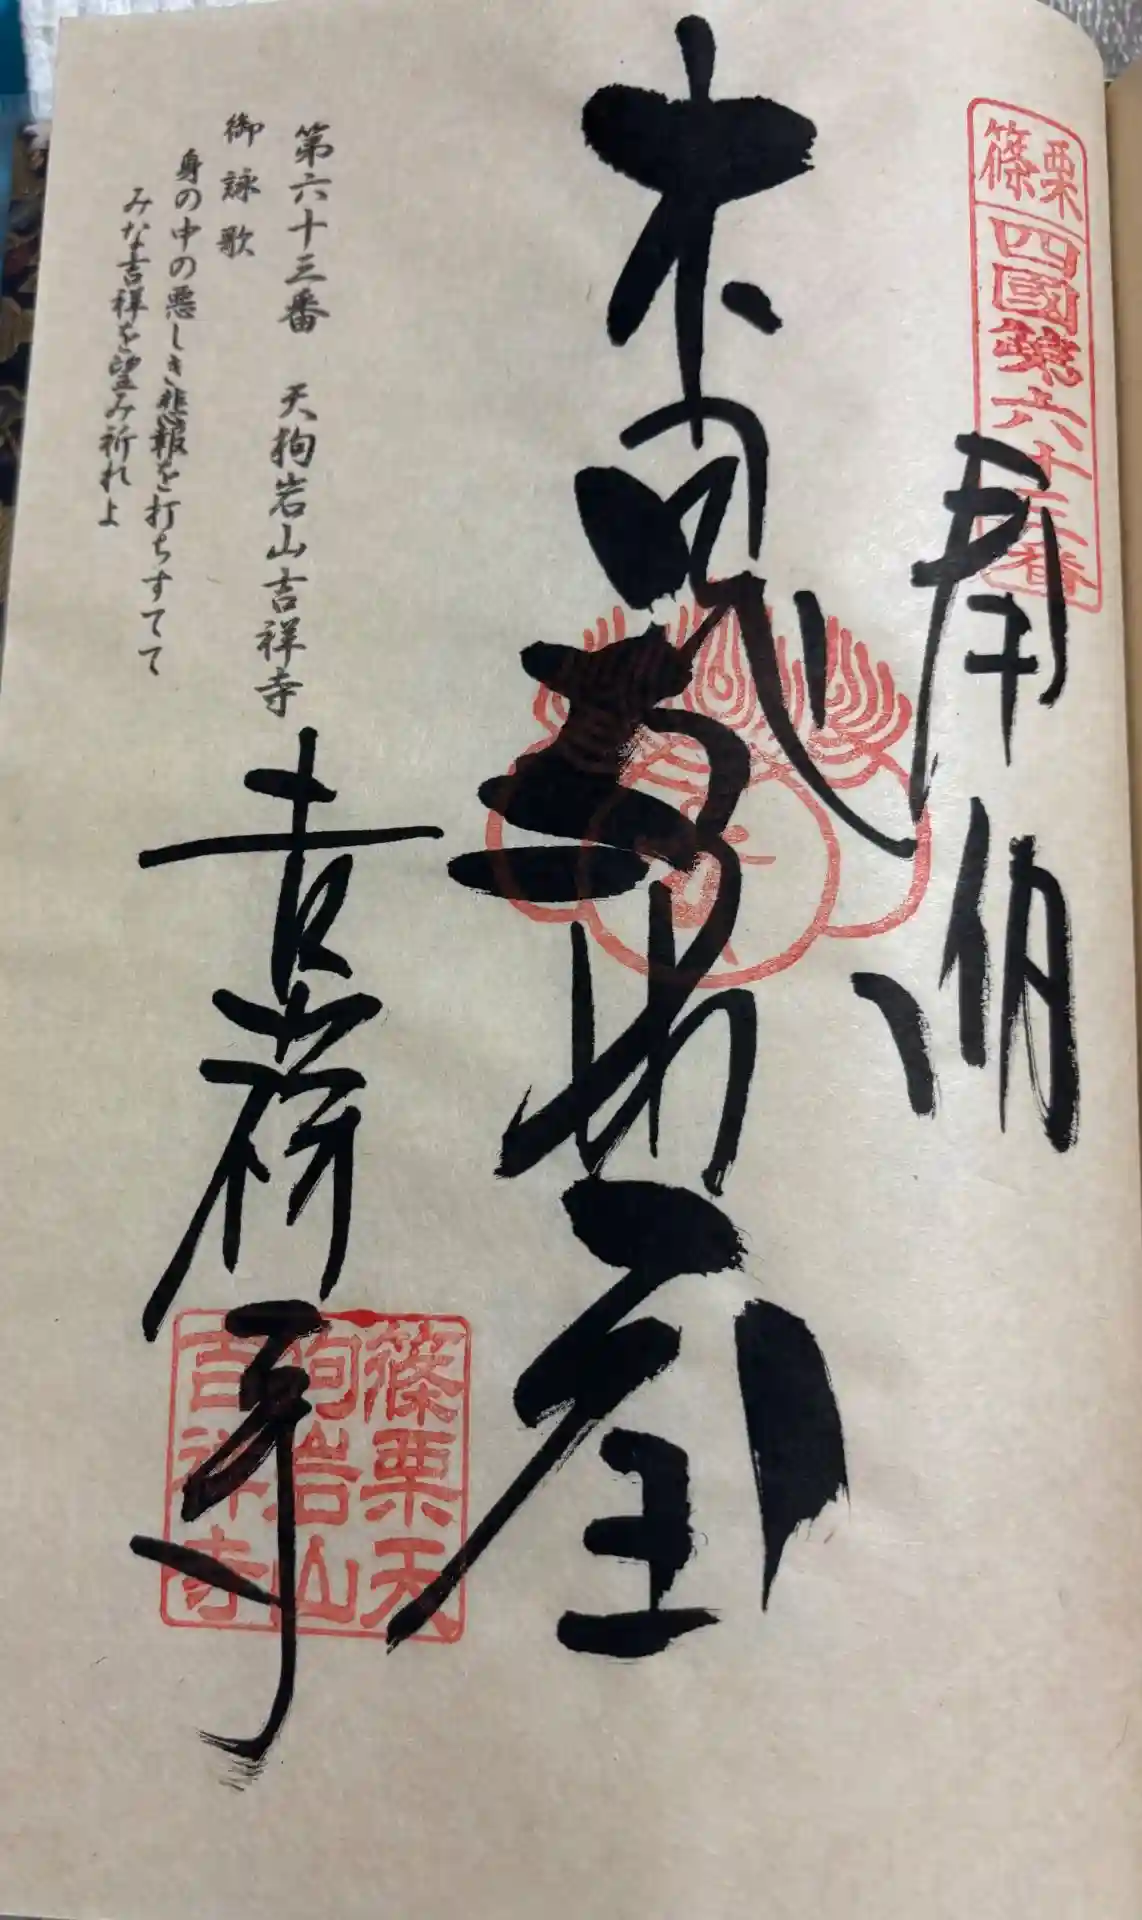 篠栗四國第六十三番
奉納
吉祥寺
篠栗天
狗岩山
吉祥寺
第六十三番 天狗岩山吉祥寺
御詠歌
身の中の悪しき悲報を打ちすてて
みな吉祥を望み祈れよ